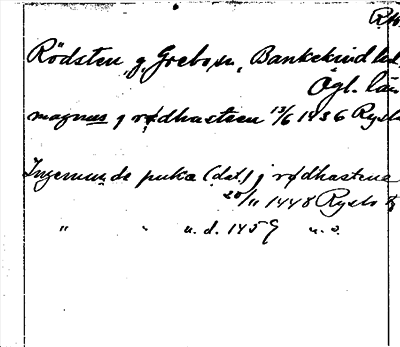 Rödsten, g, Grebo, sn, Bankekind hd,
Ögl. län
magnus j rødhasteen 13/6 1436 Rysb
Ingemunde puka (dat.) j rødhastene
20/11 1448 Rysb
" " u. d. 1459 u. s.